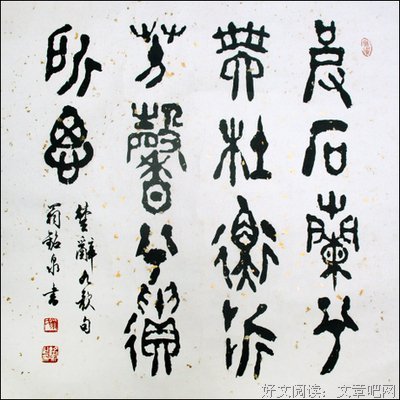 被石蘭兮
帶杜衡折
芳馨兮遺
所思
楚辭九歌句
翁銘泉書
好文阅读：文章吧网